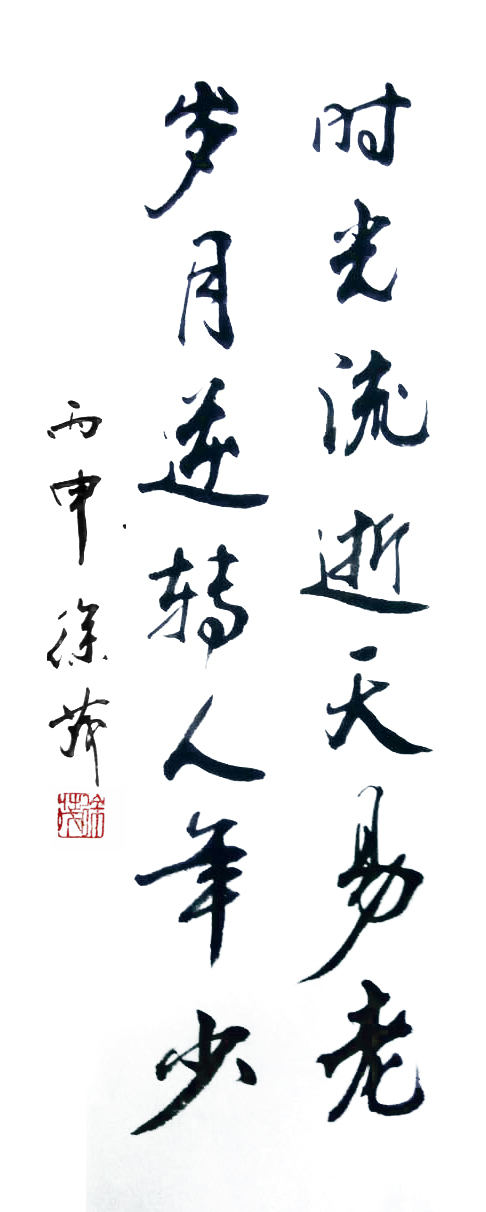 时光流逝天易老
岁月逆转人年少
丙申徐